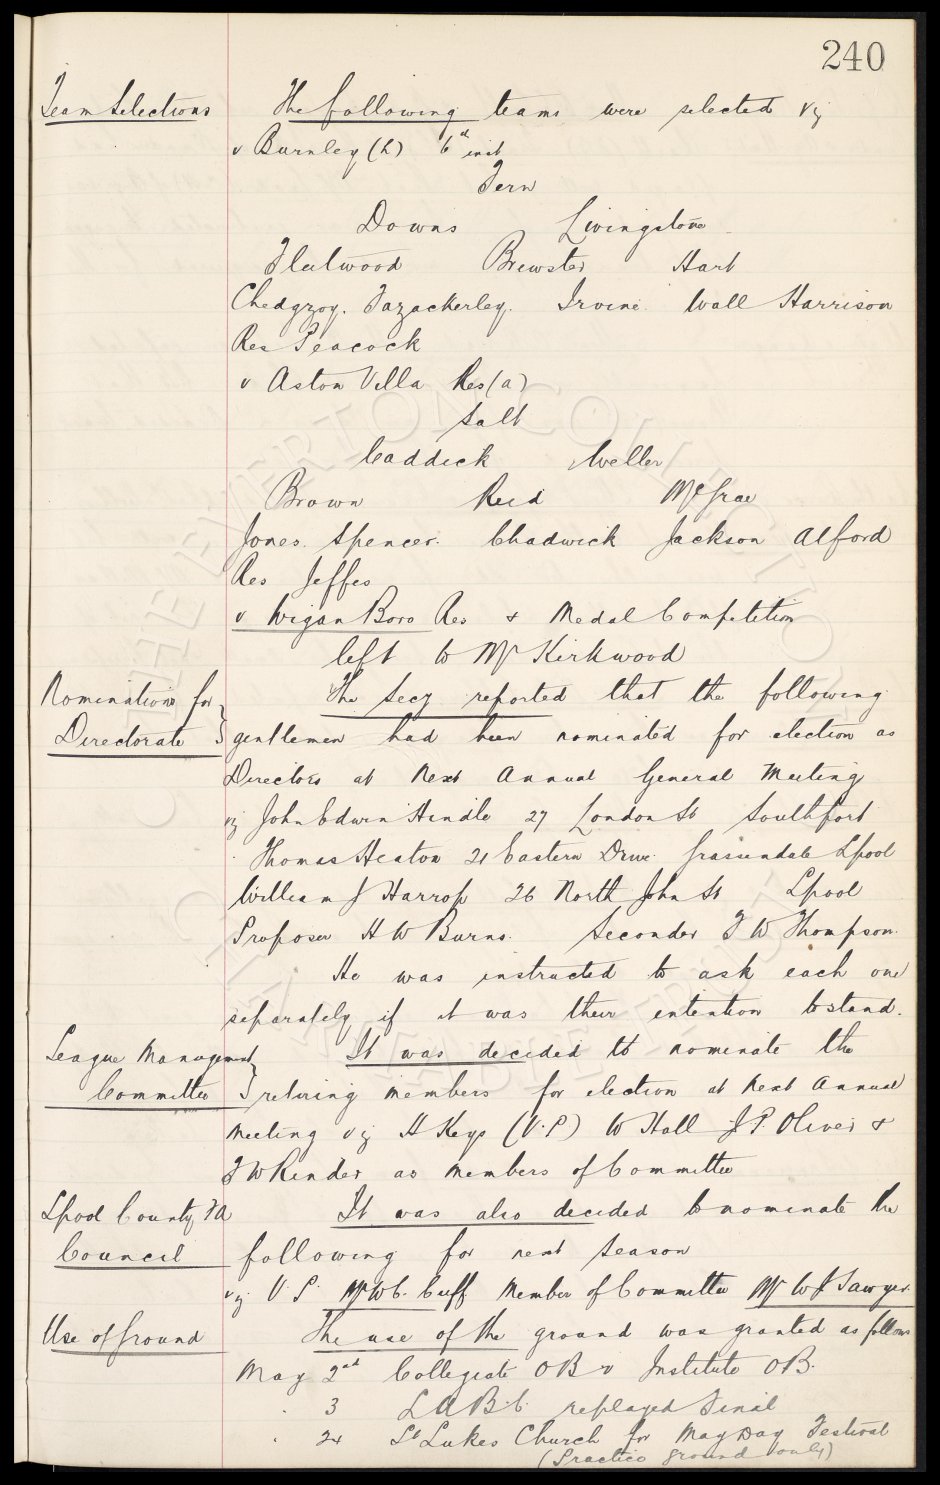 240
Team Selections The following teams were selected viz
v Burnley (h) 6th inst
Fern
Downs Livingstone
Fleetwood Brewster Hart
Chedgzoy. Fazackerley. Irvine. Wall Harrison
Res Peacock
v Aston Villa Res (a)
Salt
Caddick Weller
Brown Reid McGrae
Jones. Spencer. Chadwick Jackson Alford
Res Jeffes
v Wigan Boro Res & Medal Competition
left to Mr Kirkwood
Nominations for The Secy reported that the following
Directorate gentlemen had been nominated for election as
Directors at next Annual General Meeting
viz John Edwin Hindle 27 London St Southport
Thomas Heaton 21 Eastern Drive Grassendale Lpool
William J Harrop 26 North John St Lpool
Proposer H W Burns. Seconder F W Thompson.
He was instructed to ask each one
separately if it was their intention to stand.
League Management It was decided to nominate the
Committee retiring members for election at next Annual
Meeting viz H Keys (V.P) W Hall J.P. Oliver &
F W Rinder as members of Committee
Lpool County FA It was also decided to nominate the
Council following for next season
viz. V.P. Mr W C. Cuff Member of Committee Mr W J Sawyer.
Use of Ground The use of the ground was granted as follows
May 2nd Collegiate OB v Institute OB.
. 3 replayed Final
. 24 St Lukes Church for May Day Festival
(Practice ground only)
THE EVERTON COLLECTION